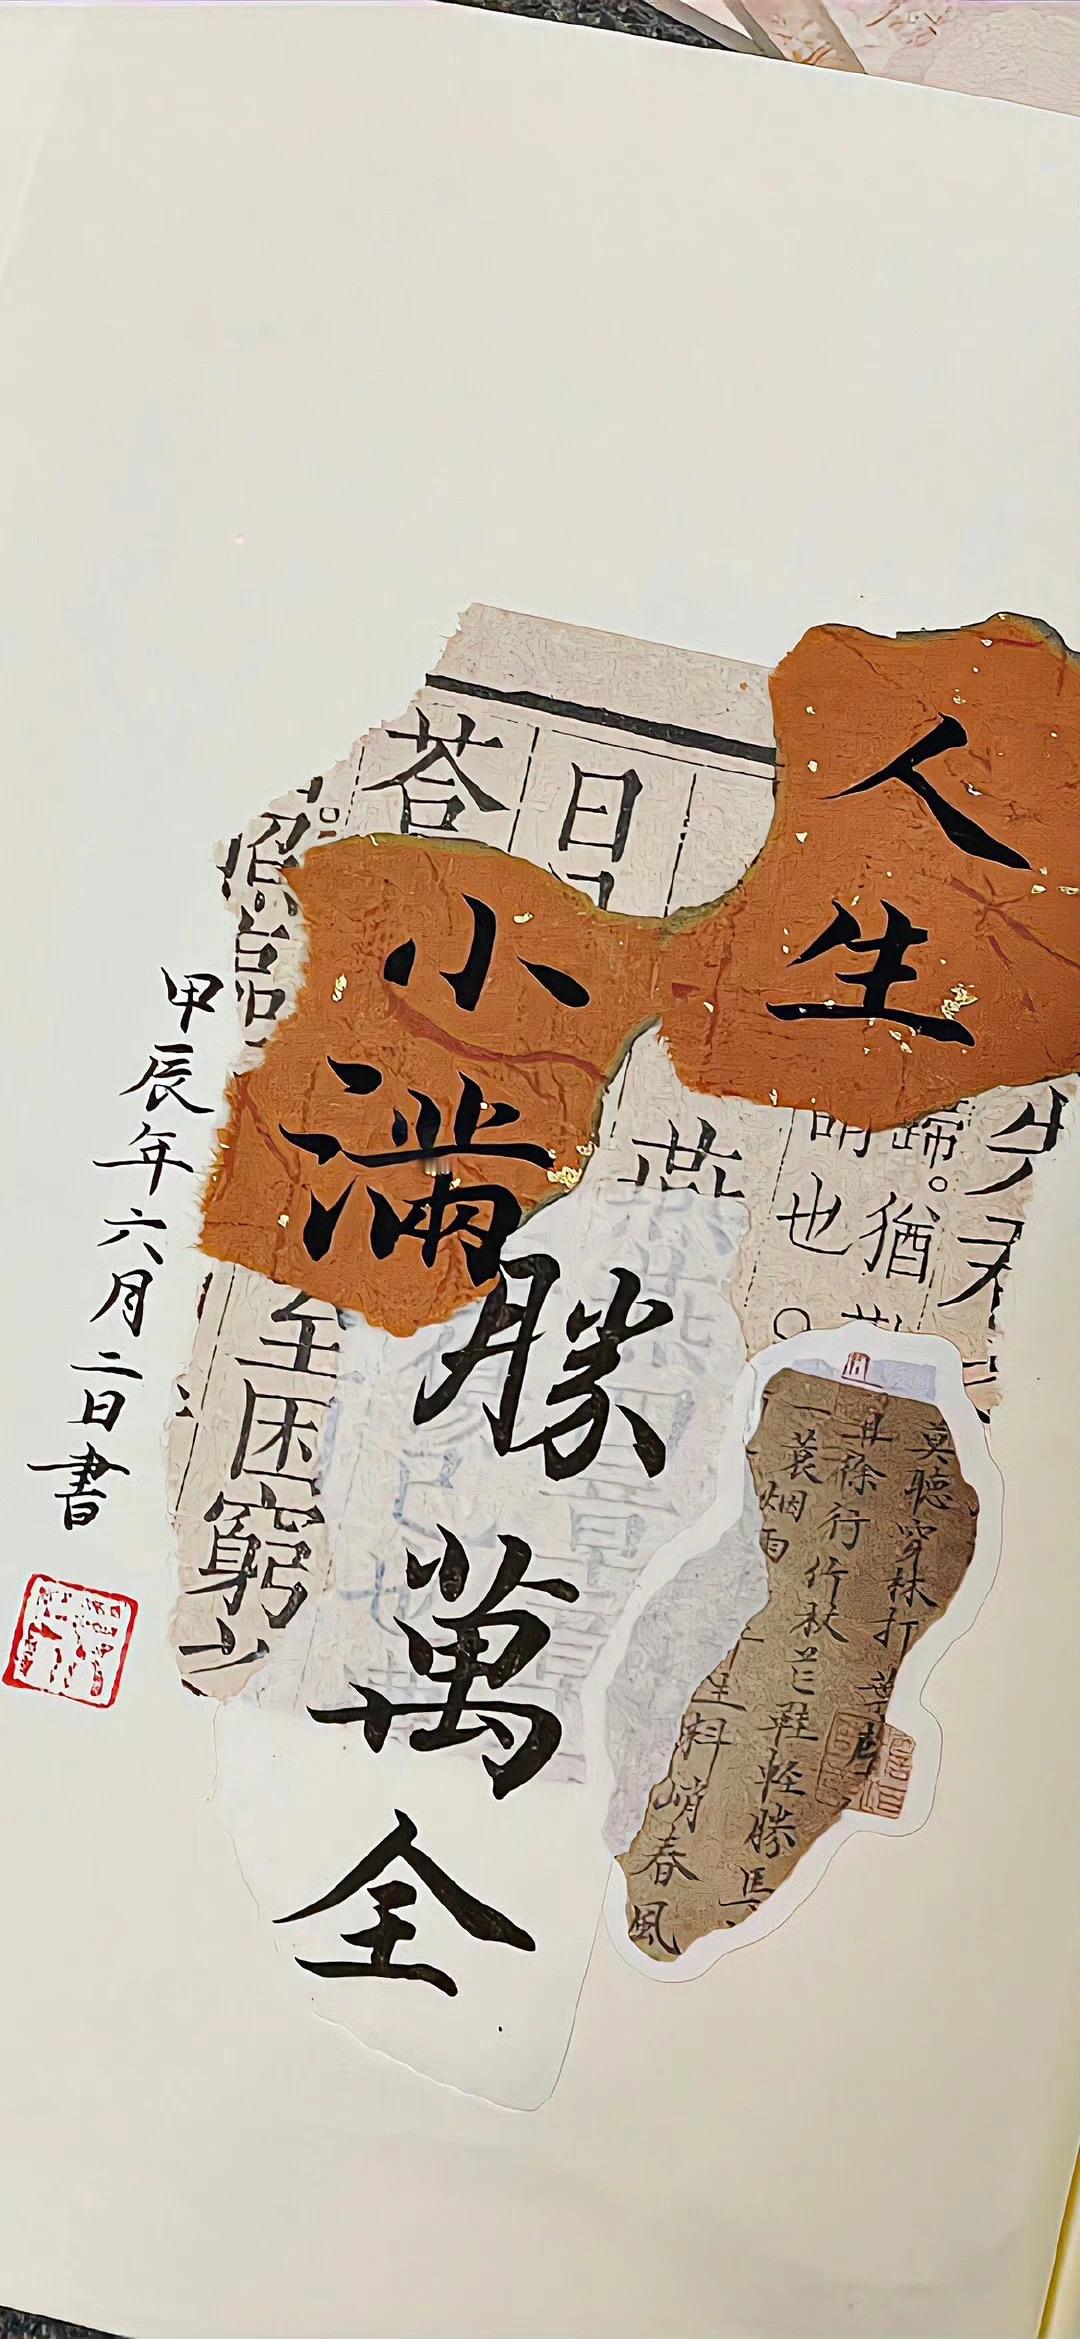 人生
小滿
勝萬全
甲辰年六月二日書
日
荅
蹄。猶
也
燕
至困窮
莫聽穿林打葉聲
且徐行
竹杖芒鞋輕勝馬
一蓑烟雨
料峭春風